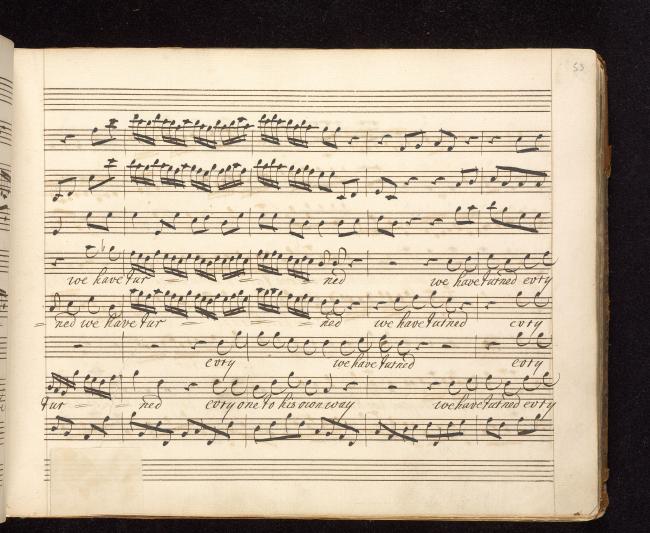 53
we have tur ned we have turned evry
ned we have tur ned we have turned evry
evry we have turned evry
tur ned evry one to his own way we have turned evry